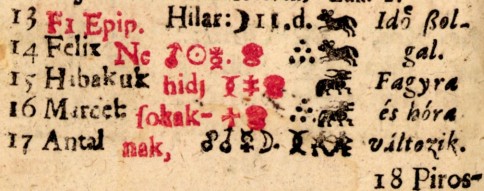 13 F1 Epip. Hilar: ☽ 11.d. Idő ßol-
14 Felix Ne ♂☉☿. gal.
15 Habakuk hidj Fagyra
16 Marcel sokak- és hóra
17 Antal nak, ☍♂☿☽. változik.
18 Piros-